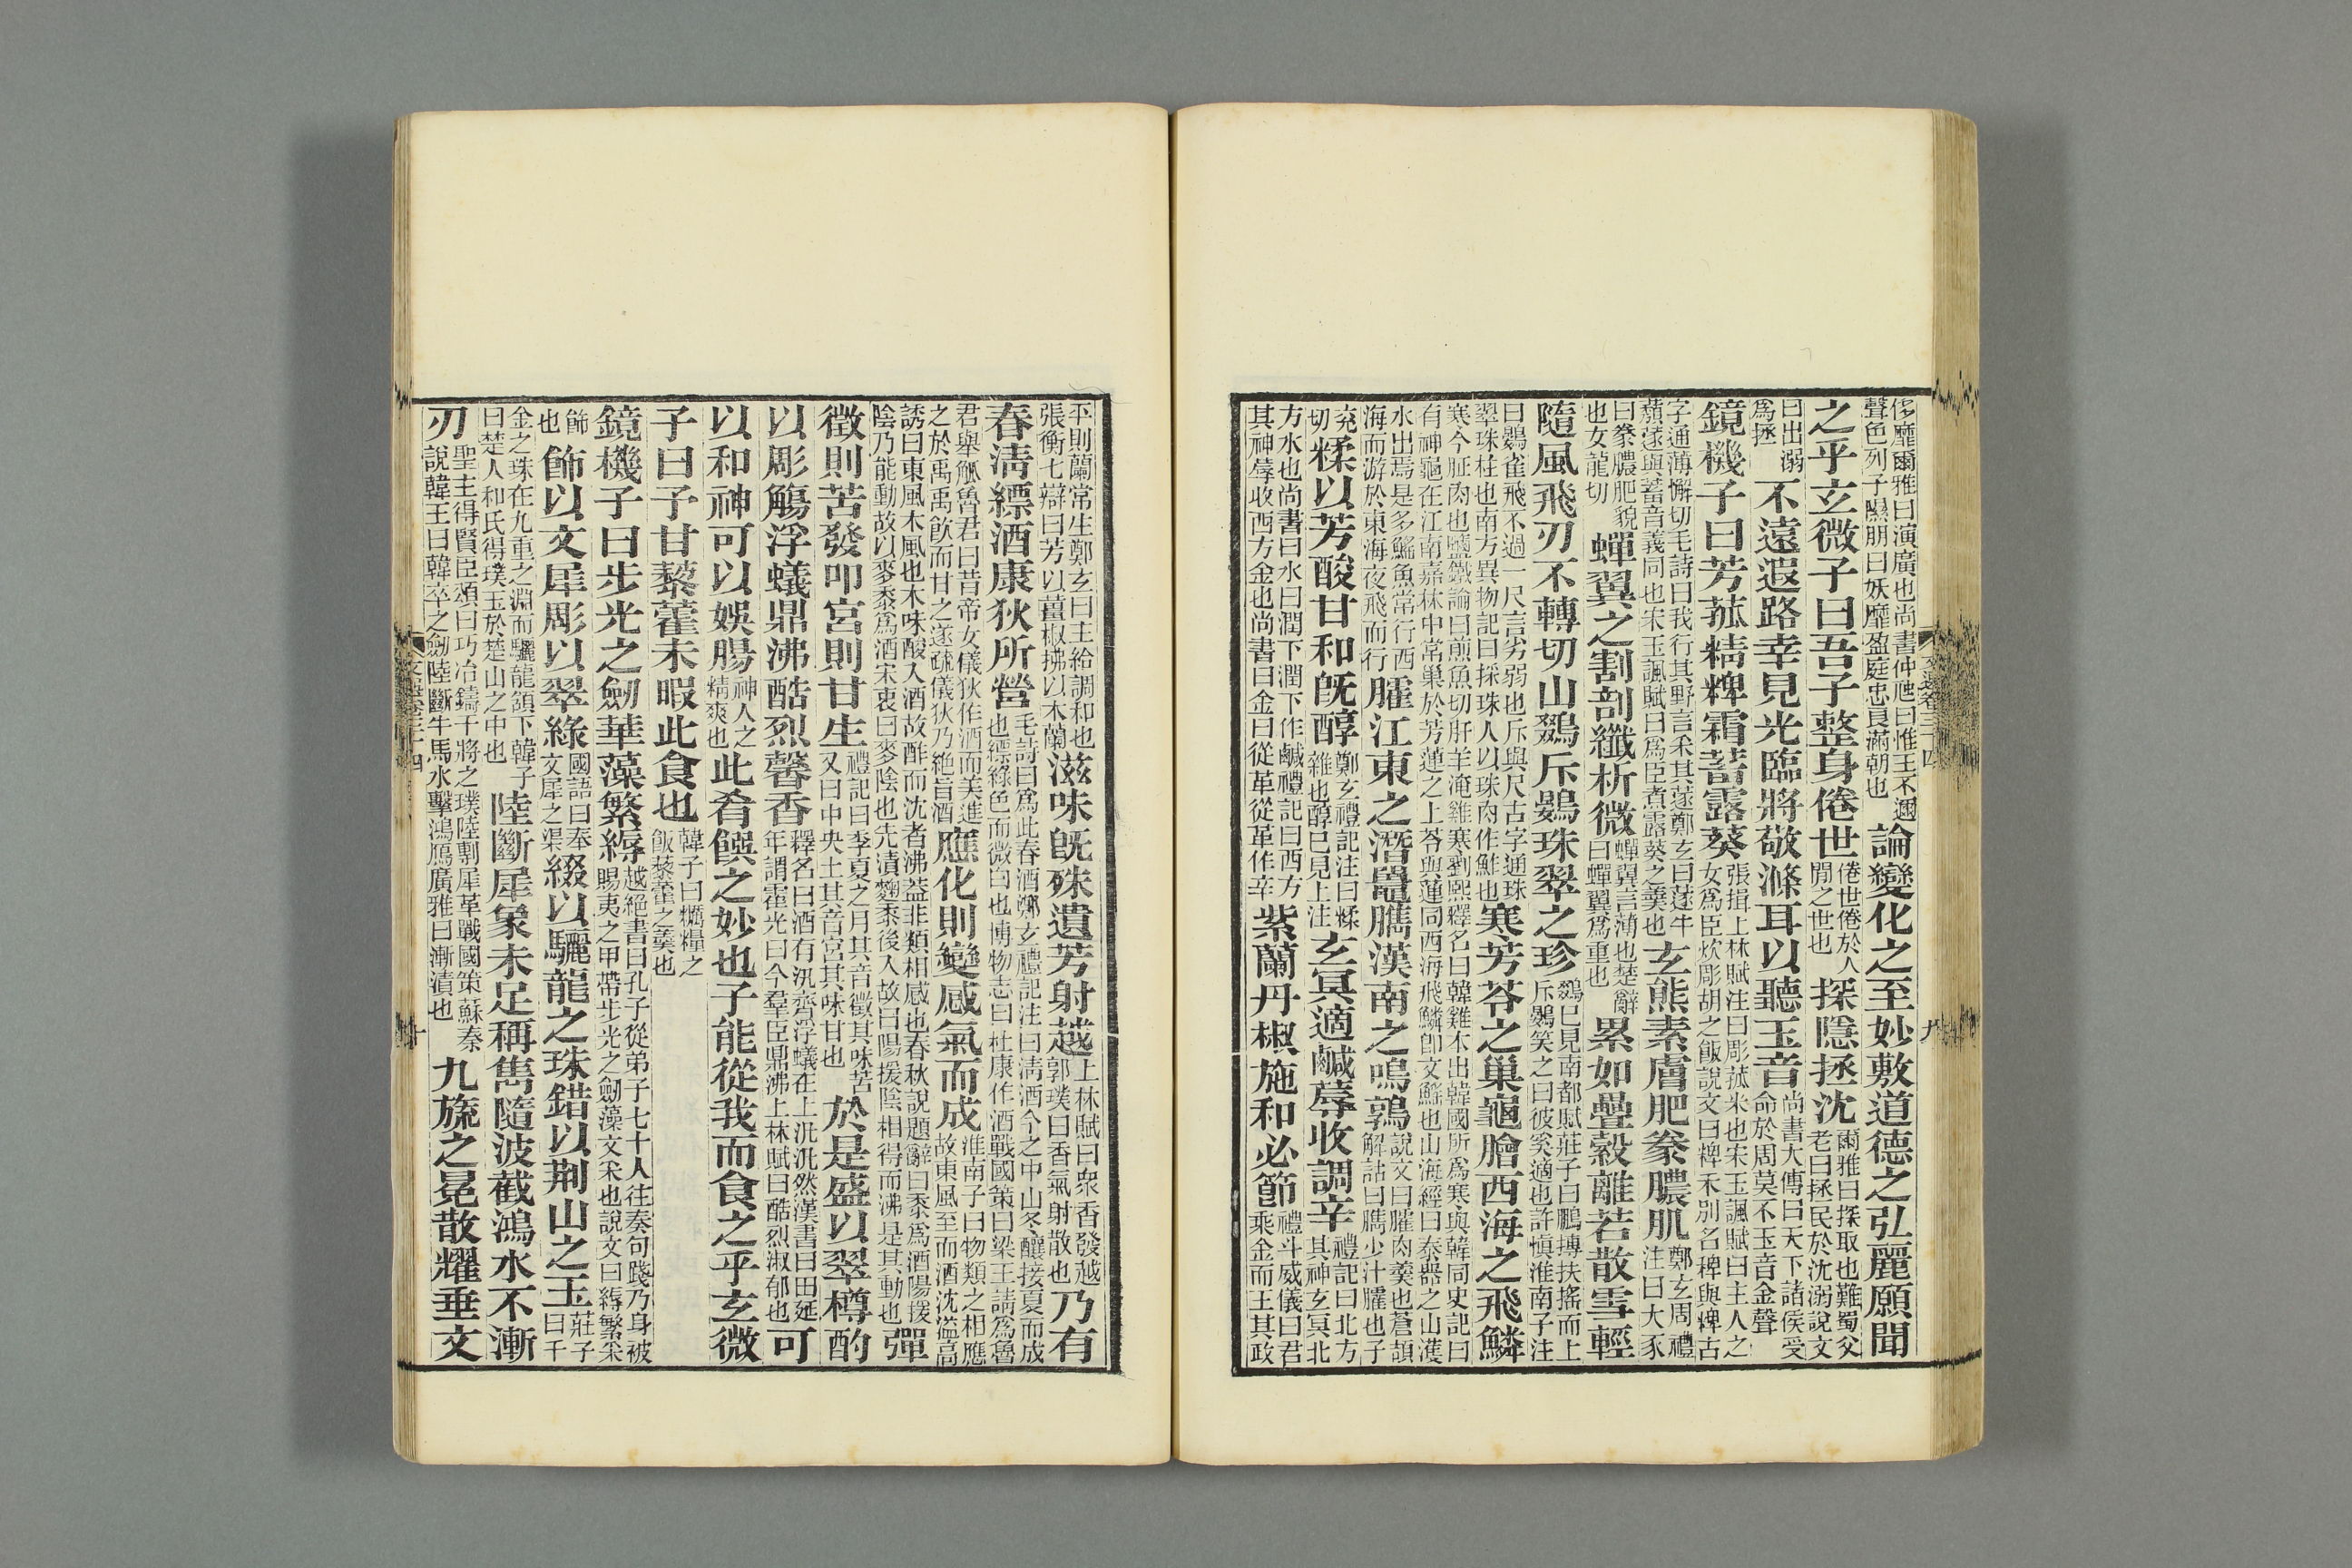 侈靡爾雅曰演廣也尚書仲虺曰惟王不邇
聲色列子隰朋曰妖靡盈庭忠良滿朝也
論變化之至妙敷道德之弘麗願聞
之乎玄微子曰吾子整身倦世
倦世倦於人
間之世也
探隱拯沈
爾雅曰探取也難蜀父
老曰拯民於沈溺說文
曰出溺
為拯
不遠遐路幸見光臨將敬滌耳以聽玉音
尚書大傳曰天下諸侯受
命於周莫不玉音金聲
鏡機子曰芳菰精粺霜蓄露葵
張揖上林賦注曰彫菰米也宋玉諷賦曰主人之
女為臣炊彫胡之飯說文曰粺禾別名稗與粺古
字通薄懈切毛詩曰我行其野言采其蓫鄭玄曰蓫牛
蘈蓫與蓄音義同也宋玉諷賦曰為臣煮露葵之羹也
玄熊素膚肥豢膿肌
鄭玄周禮
注曰犬豕
曰豢膿肥貌
也女龍切
蟬翼之割剖纖析微
蟬翼言薄也楚辭
曰蟬翼為重也
累如疊縠離若散雪輕
隨風飛刃不轉切山鵽斥鷃珠翠之珍
鵽已見南都賦莊子曰鵬摶扶搖而上
斥鷃笑之曰彼奚適也許慎淮南子注
曰鷃雀飛不過一尺言劣弱也斥與尺古字通珠
翠珠柱也南方異物記曰採珠人以珠肉作鮓也
寒芳苓之巢龜膾西海之飛鱗
寒今胚肉也鹽鐵論曰煎魚切肝羊淹雞寒劉熙釋名曰韓雞本出韓國所為寒與韓同史記曰
有神龜在江南嘉林中常巢於芳蓮之上苓與蓮同西海飛鱗即文鰩也山海經曰泰器之山濩
水出焉是多鰩魚常行西
海而游於東海夜飛而行
臛江東之潛鼉臇漢南之鳴鶉
說文曰臛肉羹也蒼頡
解詁曰臇少汁臛也子
兗
切
糅以芳酸甘和旣醇
鄭玄禮記注曰糅
雜也醇已見上注
玄冥適鹹蓐收調辛
禮記曰北方
其神玄冥北
方水也尚書曰水曰潤下潤下作鹹禮記曰西方
其神蓐收西方金也尚書曰金曰從革從革作辛
紫蘭丹椒施和必節
禮斗威儀曰君
乘金而王其政
文選卷三十四
九
平則蘭常生鄭玄曰主給調和也
張衡七辯曰芳以薑椒拂以木蘭
滋味旣殊遺芳射越
上林賦曰衆香發越
郭璞曰香氣射散也
乃有
春淸縹酒康狄所營
毛詩曰為此春酒鄭玄禮記注曰淸酒今之中山冬釀接夏而成
也縹綠色而微白也博物志曰杜康作酒戰國策曰梁王請為魯
君舉觚魯君曰昔帝女儀狄作酒而美進
之於禹禹飮而甘之遂疏儀狄乃絶旨酒
應化則變感氣而成
淮南子曰物類之相應
故東風至而酒沈溢高
誘曰東風木風也木味酸入酒故酢而沈者沸益非類相感也春秋說題辭曰黍為酒陽援
陰乃能動故以麥黍為酒宋衷曰麥陰也先漬麴黍後入故曰陽援陰相得而沸是其動也
彈
徵則苦發叩宮則甘生
禮記曰季夏之月其音徵其味苦
又曰中央土其音宮其味甘也
於是盛以翠樽酌
以彫觴浮蟻鼎沸酷烈馨香
釋名曰酒有汎齊浮蟻在上汎汎然漢書曰田延
年謂霍光曰今羣臣鼎沸上林賦曰酷烈淑郁也
可
以和神可以娛腸
神人之
精爽也
此肴饌之妙也子能從我而食之乎玄微
子曰予甘藜藿未暇此食也
韓子曰糲糧之
飯藜藿之羹也
鏡機子曰步光之劒華藻繁縟
越絶書曰孔子從弟子七十人往奏句踐乃身被
賜夷之甲帶步光之劒藻文采也說文曰縟繁采
飾
也
飾以文犀彫以翠綠
國語曰奉
文犀之渠
綴以驪龍之珠錯以荆山之玉
莊子
曰千
金之珠在九重之淵而驪龍頷下韓子
曰楚人和氏得璞玉於楚山之中也
陸斷犀象未足稱雋隨波截鴻水不漸
刃
聖主得賢臣頌曰巧冶鑄干將之璞陸剸犀革戰國策蘇秦
說韓王曰韓卒之劒陸斷牛馬水擊鴻鴈廣雅曰漸漬也
九旒之冕散耀垂文
文選卷三十四
十